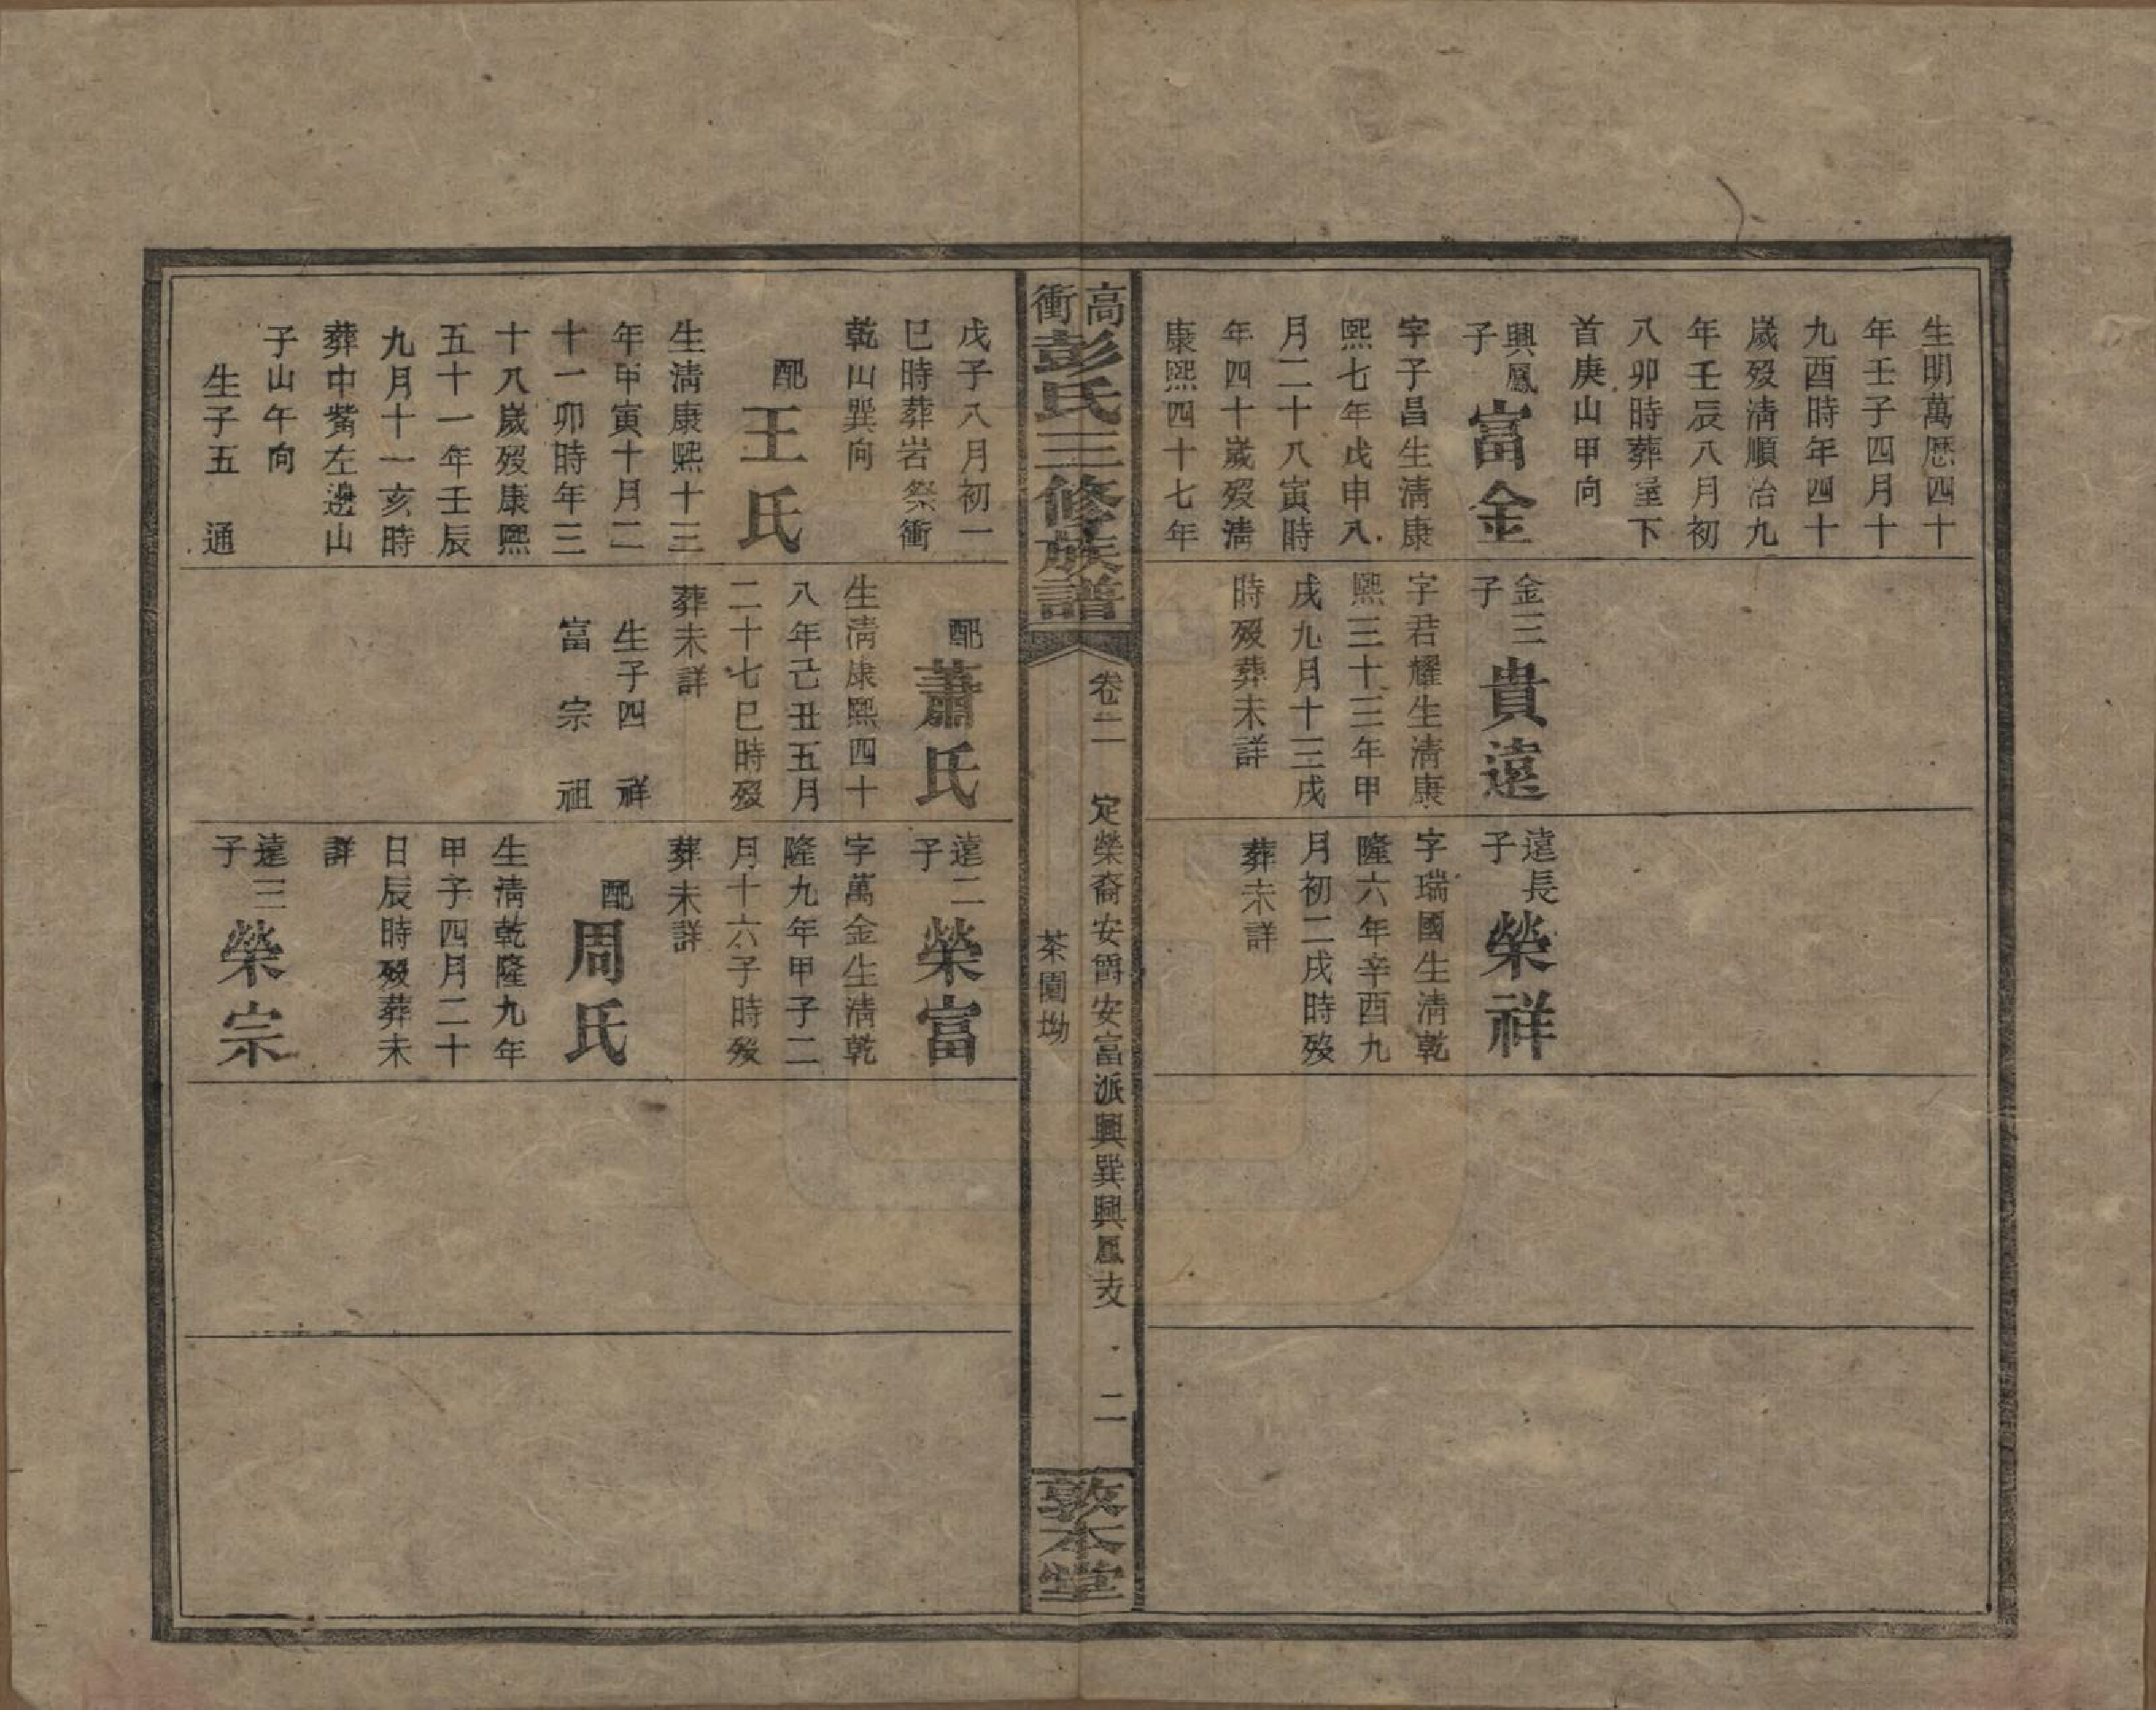 生明萬歷四十
年壬子四月十
九酉時年四十
歲歿淸順治九
年壬辰八月初
八卯時葬屋下
首庚山甲向
興鳳子 富金
字子昌生淸康
熙七年戊申八
月二十八寅時
年四十歲歿淸
康熙四十七年
金三子 貴遠
字君耀生淸康
熙三十三年甲
戌九月十三戌
時歿葬未詳
遠長子 榮祥
字瑞國生淸乾
隆六年辛酉九
月初二戌時歿
葬未詳
高衝彭氏三修族譜
卷二 定榮裔安爵安富派興巽興鳳支 二
茶園坳
敦本堂
戊子八月初一
巳時葬岩祭衝
乾山巽向
配王氏
生淸康熙十三
年甲寅十月二
十一卯時年三
十八歲歿康熙
五十一年壬辰
九月十一亥時
葬中觜左邊山
子山午向
生子五 通
配蕭氏
生淸康熙四十
八年己丑五月
二十七巳時歿
葬未詳
生子四 祥
富 宗 祖
遠二子 榮富
字萬金生淸乾
隆九年甲子二
月十六子時歿
葬未詳
配周氏
生淸乾隆九年
甲子四月二十
日辰時歿葬未
詳
遠三子 榮宗